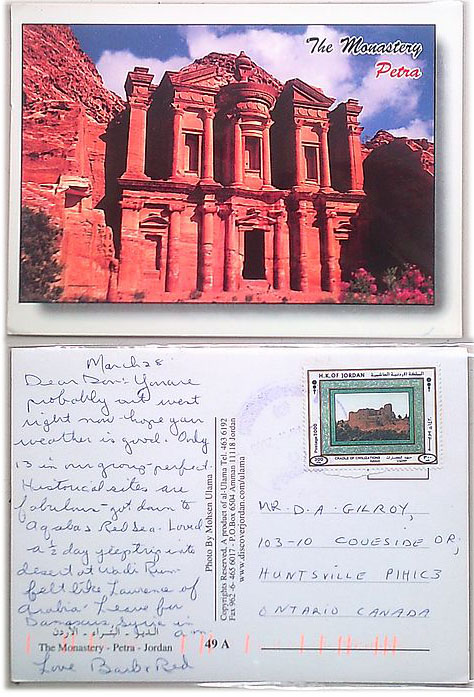 The Monastery
Petra
March 28
Dear Don: You are
probably out west
right now - hope your
weather is good. Only
13 in our group - perfect.
Historical sites are
fabulous - got down to
Aqaba & Red Sea. Loved
a ½ day jeep trip into
desert at Wadi Rum -
felt like Lawrence of
Arabia! Leave for
Damascus, Syria in
a.m.
Love Barb & Red
الدير - البتراء - الأردن
The Monastery - Petra - Jordan
49 A
Photo By Mohsen Ulama
Copyrights Reserved. A product of al-Ulama Tel 463 6192
Fax 962 -6- 465 6017 - P.O.Box 6504 Amman 11118 Jordan
www.discoverjordan.com/ulama
H.K. OF JORDAN
المملكة الأردنية الهاشمية
Postage 2000
CRADLE OF CIVILIZATIONS
MR. D. A. GILROY,
103-10 COVESIDE DR,
HUNTSVILLE P1H1C3
ONTARIO CANADA